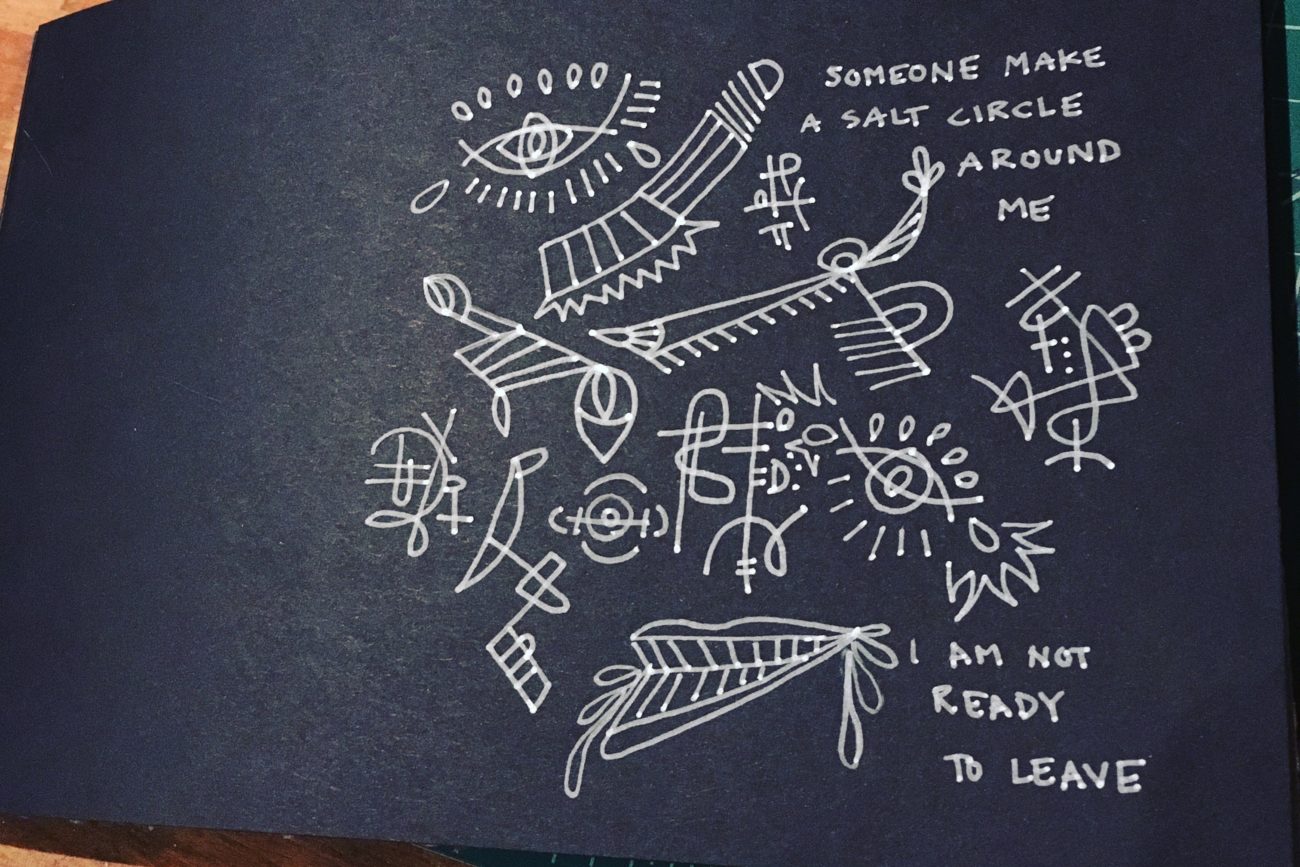 SOMEONE MAKE
A SALT CIRCLE
AROUND
ME
I AM NOT
READY
TO LEAVE